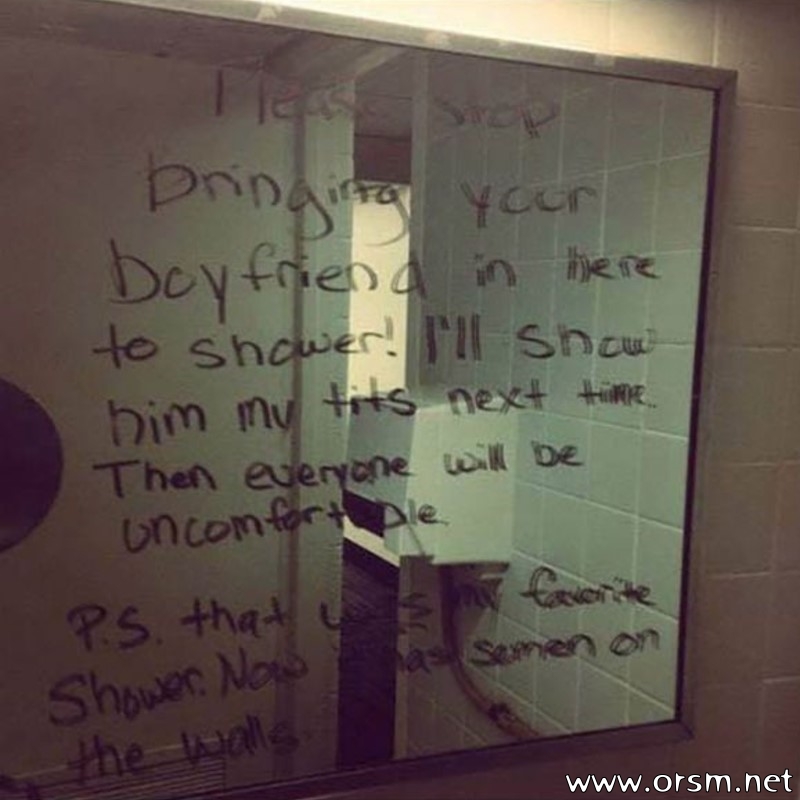 Please stop
bringing your
boyfriend in here
to shower! I'll show
him my tits next time.
Then everyone will be
uncomfortable.
P.S. that was my favorite
Shower. Now it has semen on
the walls.
www.orsm.net